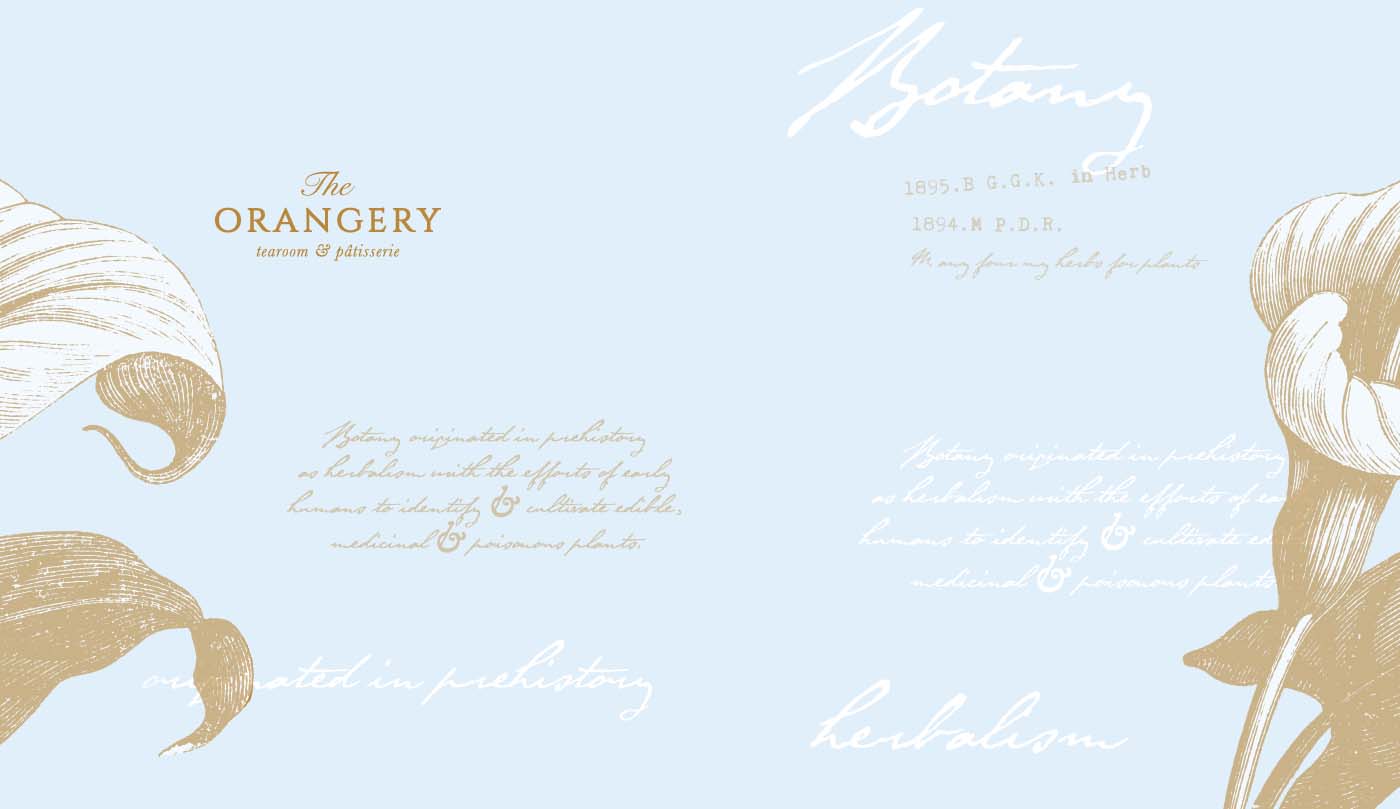 The
ORANGERY
tearoom & pâtisserie
Botany originated in prehistory
as herbalism with the efforts of early
humans to identify & cultivate edible,
medicinal & poisonous plants.
originated in prehistory
Botany
1895.B G.G.K. in Herb
1894.M P.D.R.
M any four my herbs for plants
Botany originated in prehistory
as herbalism with the efforts of ea
humans to identify & cultivate ed
medicinal & poisonous plants
herbalism